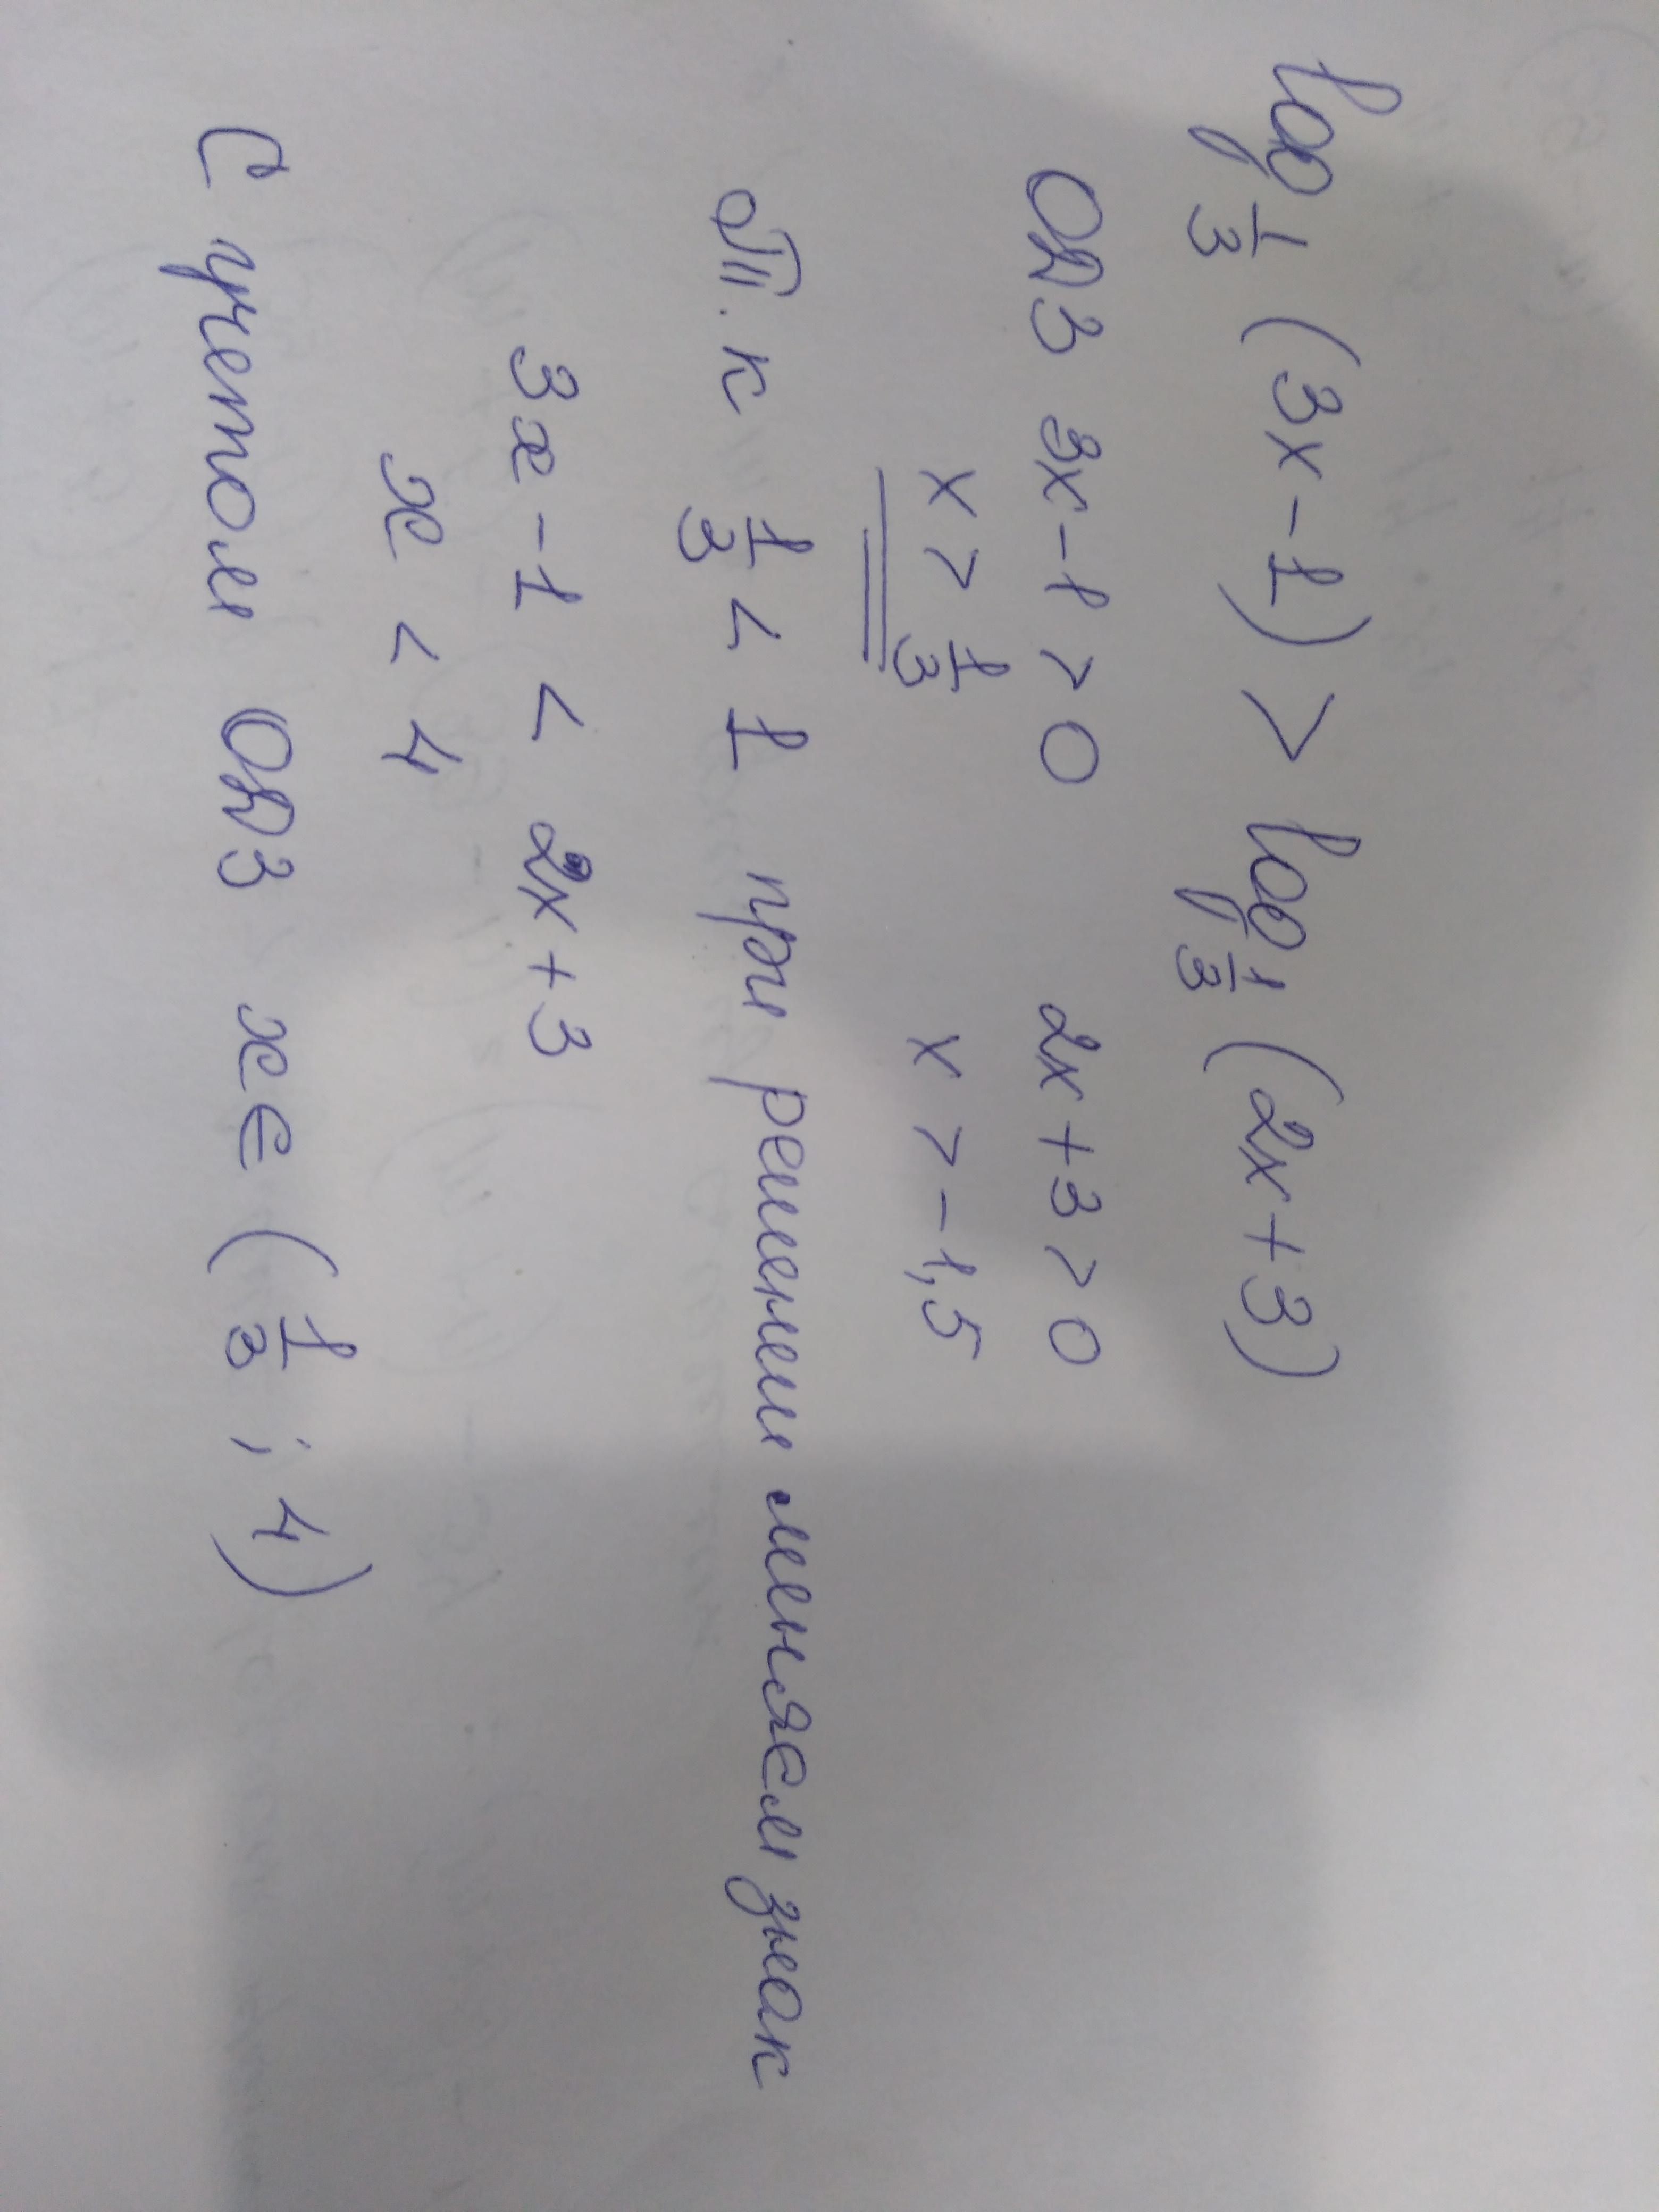 log 1/3 (3x-1) > log 1/3 (2x+3)
ОДЗ 3x-1>0 2x+3>0
x > 1/3 x > -1,5
Т.к 1/3 < 1 при решении меняем знак
3x-1 < 2x+3
x < 4
С учетом ОДЗ x∈ (1/3 ; 4)